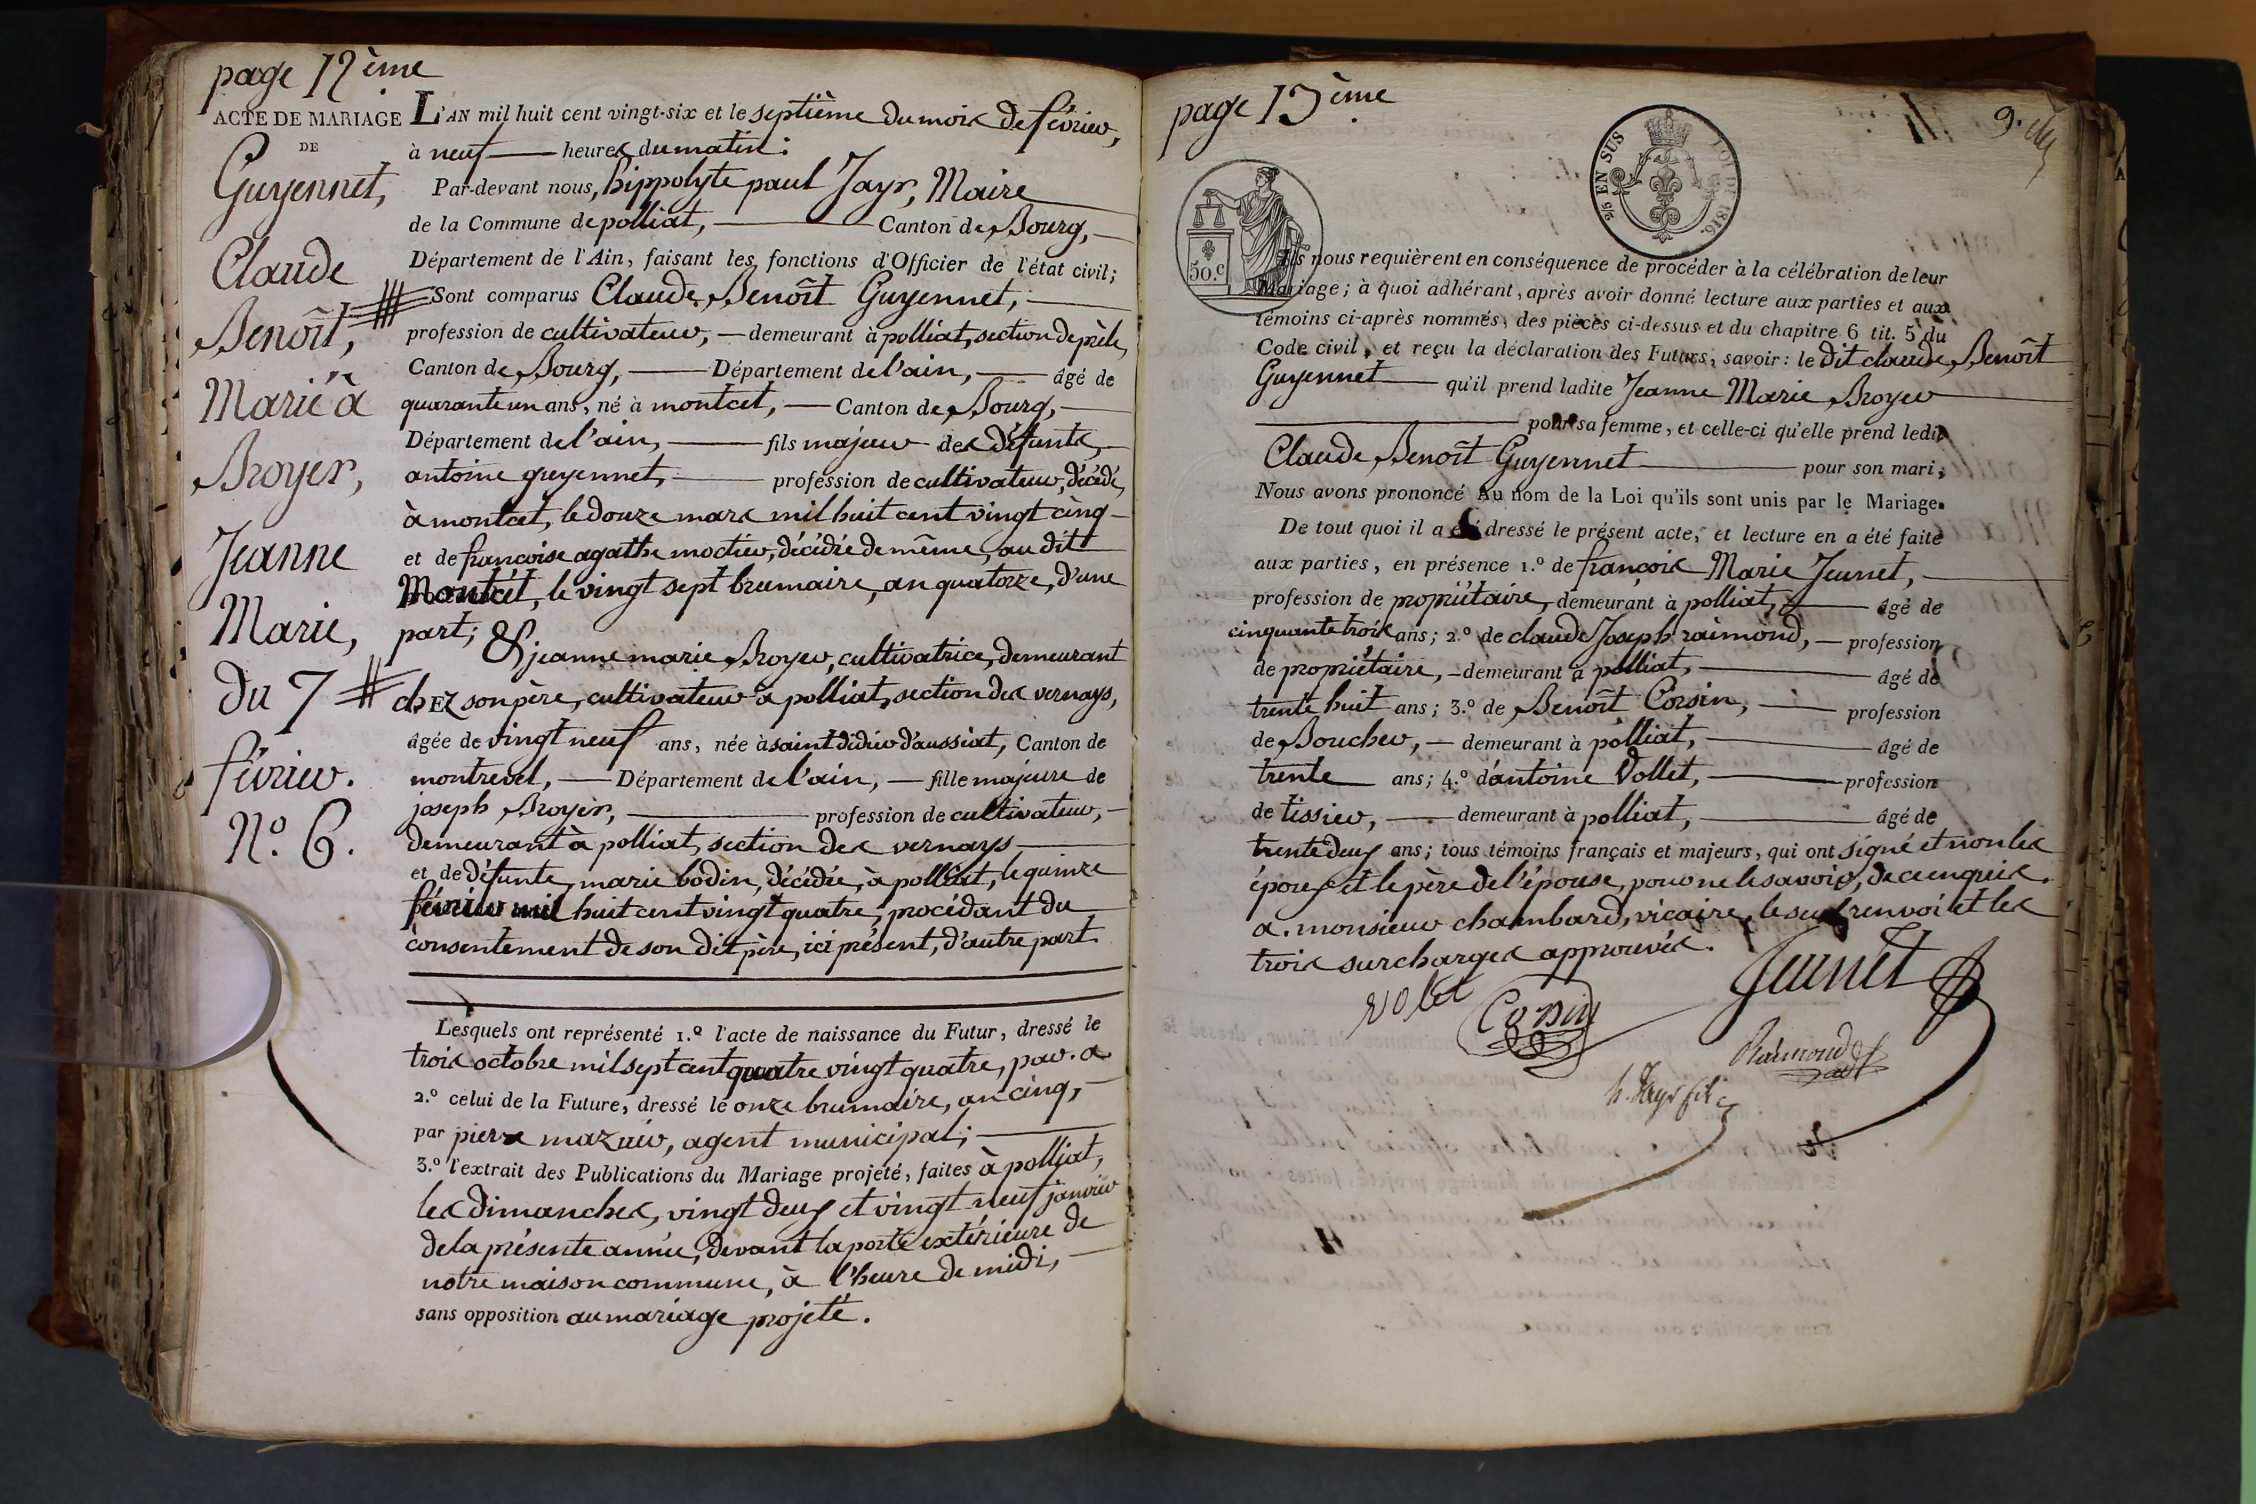 page 12ème
ACTE DE MARIAGE
DE
Guyennet,
Claude
Benoît,
Marié à
Broyer,
Jeanne
Marie,
du 7
février.
N.o 6.
L'AN mil huit cent vingt-six et le septième du mois de février,
à neuf heures du matin:
Par-devant nous, hippolyte paul Jayr, Maire
de la Commune de polliat, Canton de Bourg,
Département de l'Ain, faisant les fonctions d'Officier de l'état civil;
Sont comparus Claude Benoît Guyennet,
profession de cultivateur, demeurant à polliat, section de prèle,
Canton de Bourg, Département de l'ain, âgé de
quarante un ans, né à montcet, Canton de Bourg,
Département de l'ain, fils majeur des défunts,
antoine guyennet, profession de cultivateur, décédé,
à montcet, le douze mars mil huit cent vingt cinq
et de françoise agathe moctier, décédée de même, au dit
Montcet, le vingt sept brumaire, an quatorze, d'une
part; & jeanne marie Broyer, cultivatrice, demeurant
chez son père, cultivateur à polliat, section des vernays,
âgée de vingt neuf ans, née à saint didier d'aussiat, Canton de
montrevel, Département de l'ain, fille majeure de
joseph Broyer, profession de cultivateur,
demeurant à polliat, section des vernays
et de défunte, marie bodin, décédée, à polliat, le quinze
février mil huit cent vingt quatre; procédant du
consentement de son dit père, ici présent, d'autre part.
Lesquels ont représenté 1.o l'acte de naissance du Futur, dressé le
trois octobre mil sept cent quatre vingt quatre, par. a.
2.o celui de la Future, dressé le onze brumaire, an cinq,
par pierre mazuir, agent municipal;
3.o l'extrait des Publications du Mariage projeté, faites à polliat,
les dimanches, vingt deux et vingt neuf janvier
de la présente année, devant la porte extérieure de
notre maison commune, à l'heure de midi,
sans opposition au mariage projeté.
page 13ème
9.
2/5 EN SUS LOI DE 1816.
50.c
Ils nous requièrent en conséquence de procéder à la célébration de leur
Mariage; à quoi adhérant, après avoir donné lecture aux parties et aux
témoins ci-après nommés, des pièces ci-dessus et du chapitre 6 tit. 5 du
Code civil, et reçu la déclaration des Futurs, savoir: le dit claude Benoît
Guyennet qu'il prend ladite Jeanne Marie Broyer
pour sa femme, et celle-ci qu'elle prend ledit
Claude Benoît Guyennet pour son mari,
Nous avons prononcé Au nom de la Loi qu'ils sont unis par le Mariage.
De tout quoi il a été dressé le présent acte, et lecture en a été faite
aux parties, en présence 1.o de françois Marie Jeunet,
profession de propriétaire, demeurant à polliat, âgé de
cinquante trois ans; 2.o de claude Joseph raimond, profession
de propriétaire, demeurant à polliat, âgé de
trente huit ans; 3.o de Benoît Corsin, profession
de Boucher, demeurant à polliat, âgé de
trente ans; 4.o d'antoine Vollet, profession
de tissier, demeurant à polliat, âgé de
trente deux ans; tous témoins français et majeurs, qui ont signé et non les
époux et le père de l'épouse, pour ne le savoir, de ce enquis.
a. monsieur chambard, vicaire, le seul renvoi et les
trois surcharges approuvés.
volet
Corsin
Jeunet
Raimond
h. Jayr fils